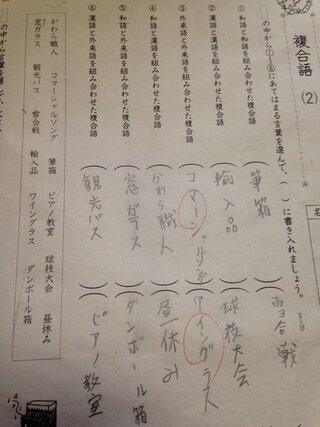 複合語 (2)
名
の中から①〜⑥にあてはまる言葉を選んで、( )に書き入れましょう。
① 和語と和語を組み合わせた複合語 (筆箱)(雪合戦)
② 漢語と漢語を組み合わせた複合語 (輸入品)(球技大会)
③ 外来語と外来語を組み合わせた複合語 (コマーシャルソング)(ワイングラス)
④ 和語と漢語を組み合わせた複合語 (かわら職人)(昼休み)
⑤ 和語と外来語を組み合わせた複合語 (窓ガラス)(ダンボール箱)
⑥ 漢語と外来語を組み合わせた複合語 (観光バス)(ピアノ教室)
かわら職人 コマーシャルソング 筆箱 ピアノ教室 球技大会 昼休み
窓ガラス 観光バス 雪合戦 輸入品 ワイングラス ダンボール箱
の中から言葉を選んで、